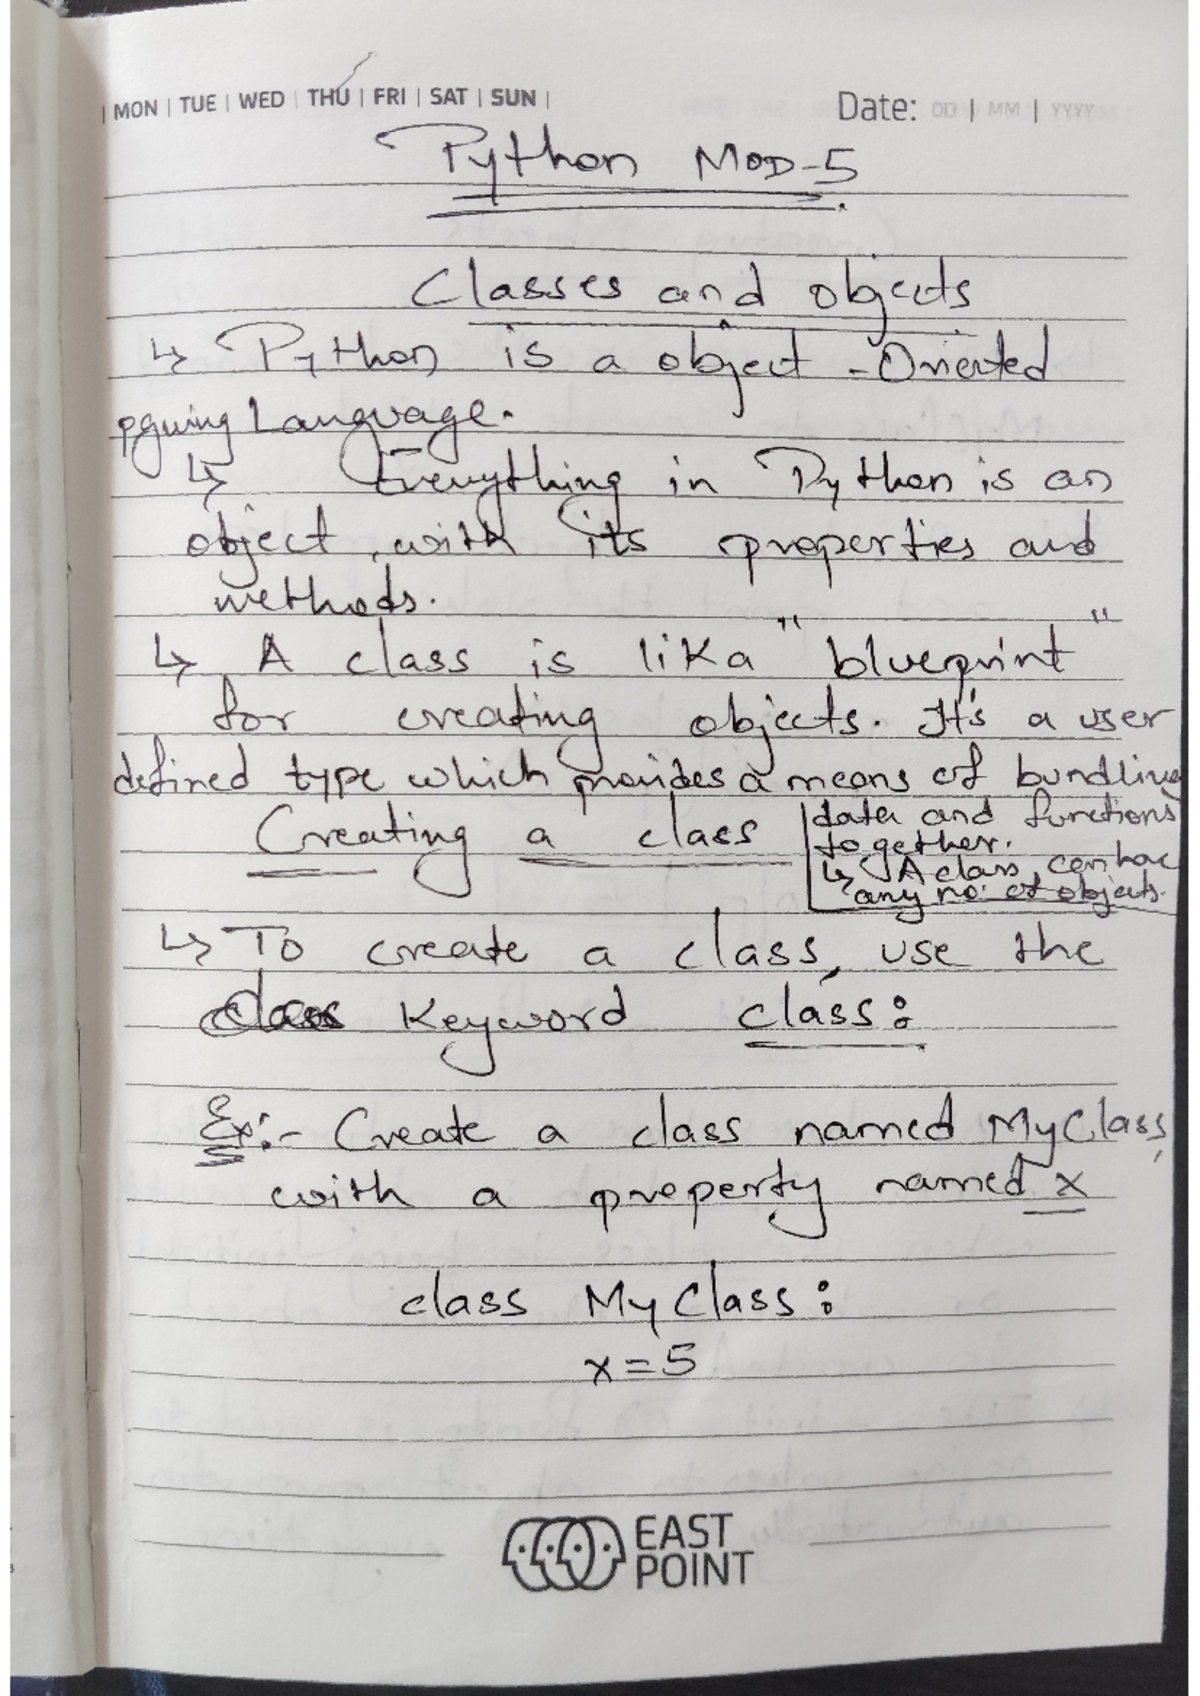 | MON | TUE | WED | THU | FRI | SAT | SUN |
Date: DD | MM | YYYY
Python MOD-5
Classes and objects
↳ Python is a object -Oriented
pgming Language.
↳ Everything in Python is an
object, with its properties and
methods.
↳ A class is lika "blueprint"
for creating objects. It's a user
defined type which provides a means of bundling
data and functions
together.
↳ A class can have
any no. of objects.
Creating a class
↳ To create a class, use the
class Keyword class:
Ex:- Create a class named MyClass,
with a property named x
class MyClass:
x=5
EAST
POINT